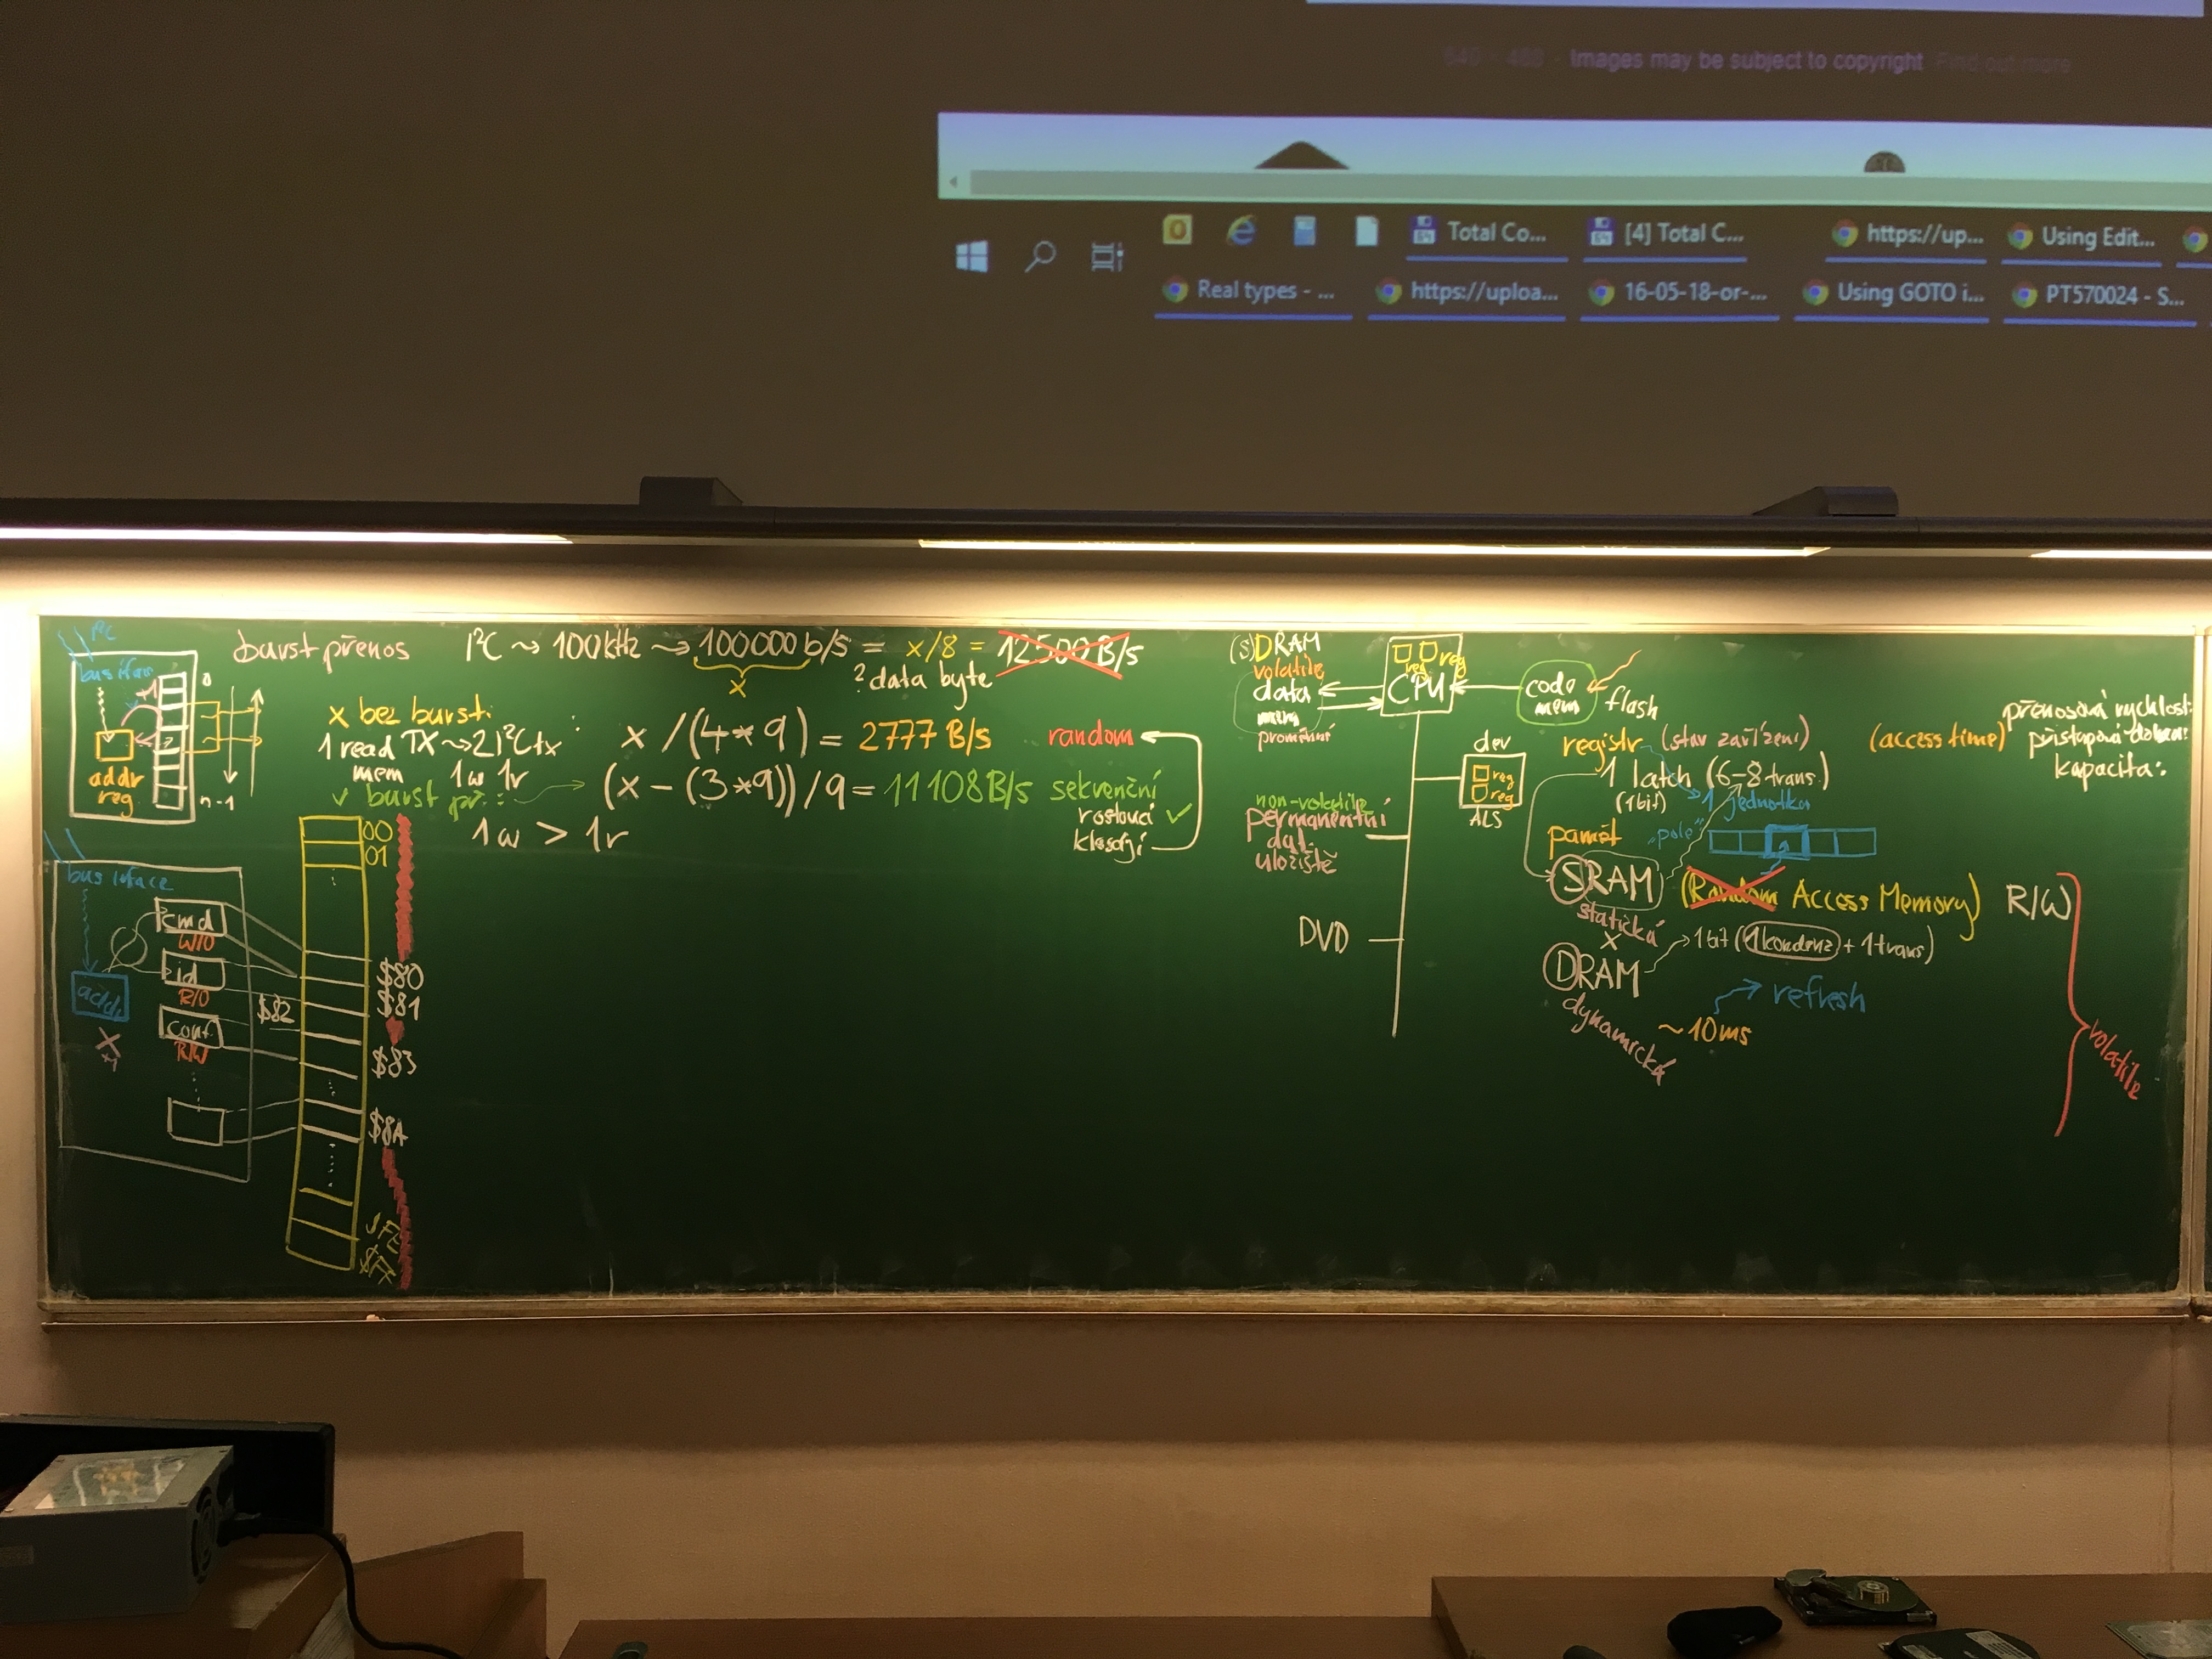 Images may be subject to copyright Find out more
Total Co...
[4] Total C...
https://up...
Using Edit...
Real types - ...
https://uploa...
16-05-18-or-...
Using GOTO i...
PT570024 - S...
I²C
bus iface
+1
0
addr
reg
n-1
burst přenos
I²C ~> 100kHz ~> 100000 b/s = x/8 = 12500 B/s
x
? data byte
x bez burst:
1 read TX ~> 2 I²C tx
mem 1w 1r
x /(4*9) = 2777 B/s random
✓ burst př.:
(x - (3*9))/9 = 11108 B/s sekvenční
rostoucí ✓
klesající
1w > 1r
00
01
bus iface
cmd
W/O
id
R/O
addr
conf
R/W
x
+1
$80
$81
$82
$83
$8A
(S)DRAM
volatile
data
mem
proměnné
reg
reg
CPU
code
mem
flash
dev
reg
reg
ALS
non-volatile
permanentní
dat.
úložiště
DVD
registr (stav zařízení)
1 latch (6-8 trans.)
(1bit)
1 jednotka
paměť
"pole"
SRAM (Random Access Memory) R/W
statická
x
DRAM
1 bit (1 kondenz + 1 trans)
dynamická
~10ms
refresh
volatile
(access time)
přenosová rychlost:
přístupová doba:
kapacita: